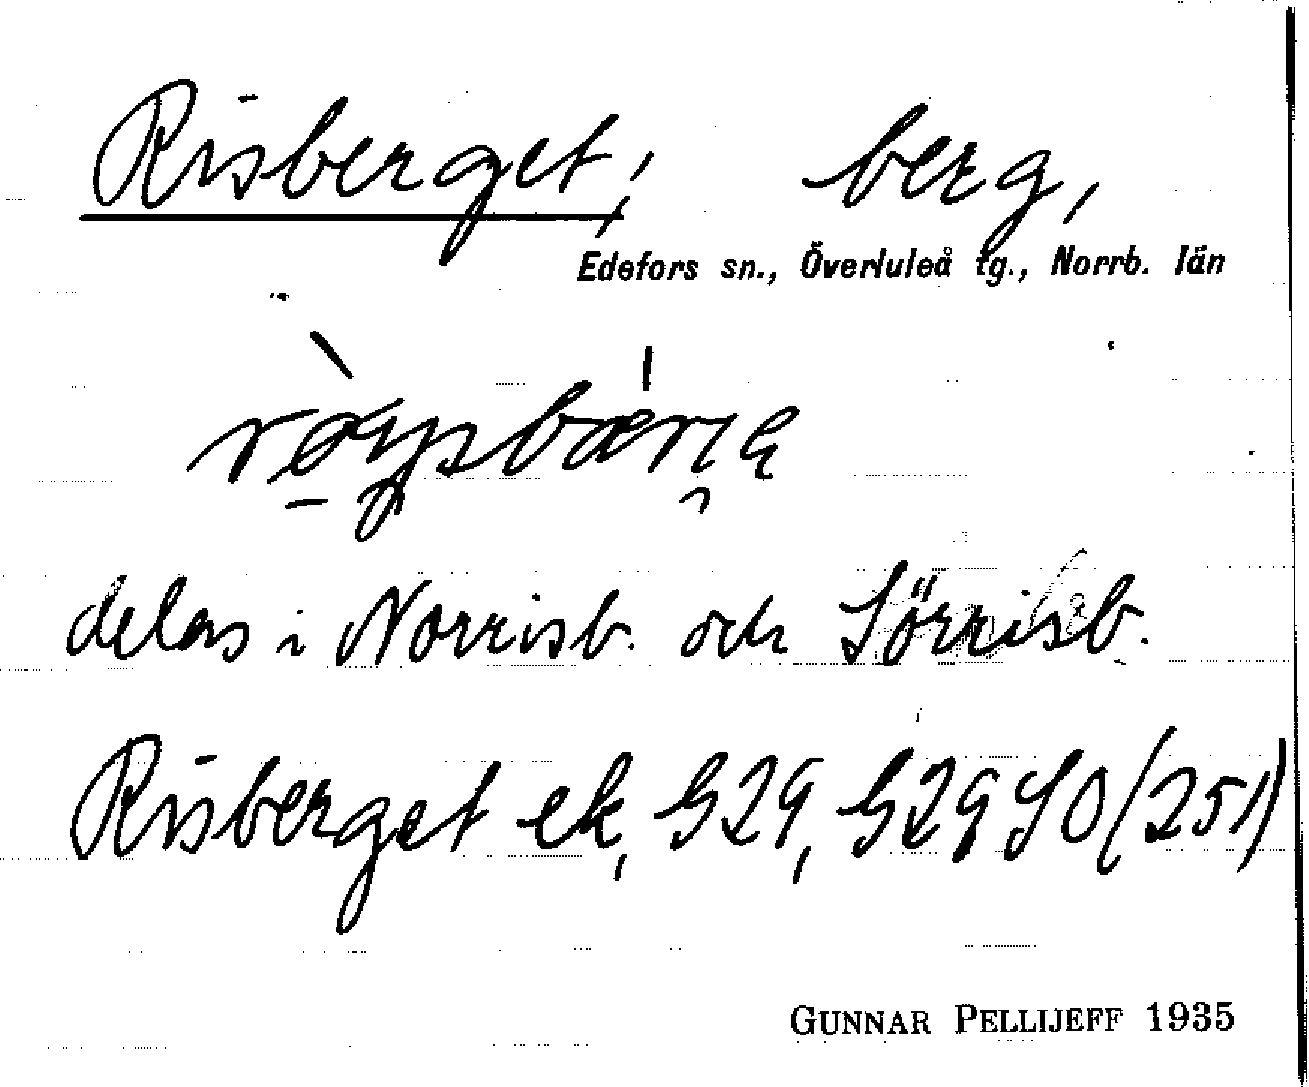 Risberget, berg,
Edefors sn., Överluleå tg., Norrb. län
delas i Norrisb. och Sörrisb.
Risberget ek, G29, G29 SO (251)
GUNNAR PELLIJEFF 1935